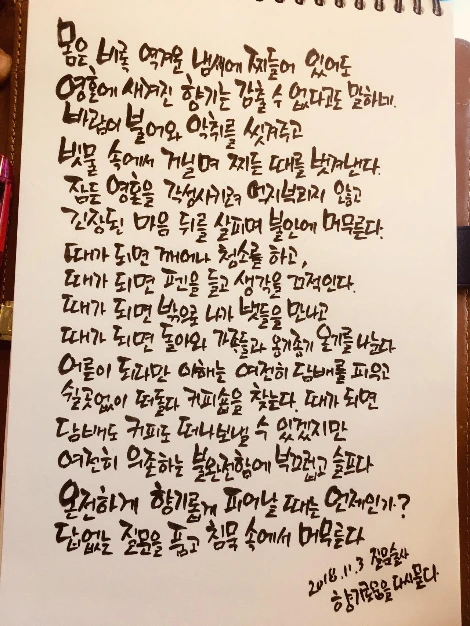 몸은 비록 역겨운 냄새에 찌들어 있어도
영혼에 새겨진 향기는 감출 수 없다고도 말하네.
바람이 불어와 악취를 씻겨주고
빗물 속에서 거닐며 찌든 때를 벗겨낸다.
잠든 영혼을 각성시키려 억지부리지 않고
긴장된 마음 뒤를 살피며 불안에 머무른다.
때가 되면 깨어나 청소를 하고,
때가 되면 펜을 들고 생각을 끄적인다.
때가 되면 밖으로 나가 벗들을 만나고
때가 되면 돌아와 가족들과 옹기종기 온기를 나눈다
어른이 되라만 이해는 여전히 담배를 피우고
쉴곳없이 떠돌다 커피숍을 찾는다. 때가 되면
담배도 커피도 떠나보낼 수 있겠지만
여전히 의존하는 불완전함에 부끄럽고 슬프다
온전하게 향기롭게 피어날 때는 언제인가?
답없는 질문을 품고 침묵 속에서 머무른다
2018.11.3 질음술사
향기로움을 다시묻다